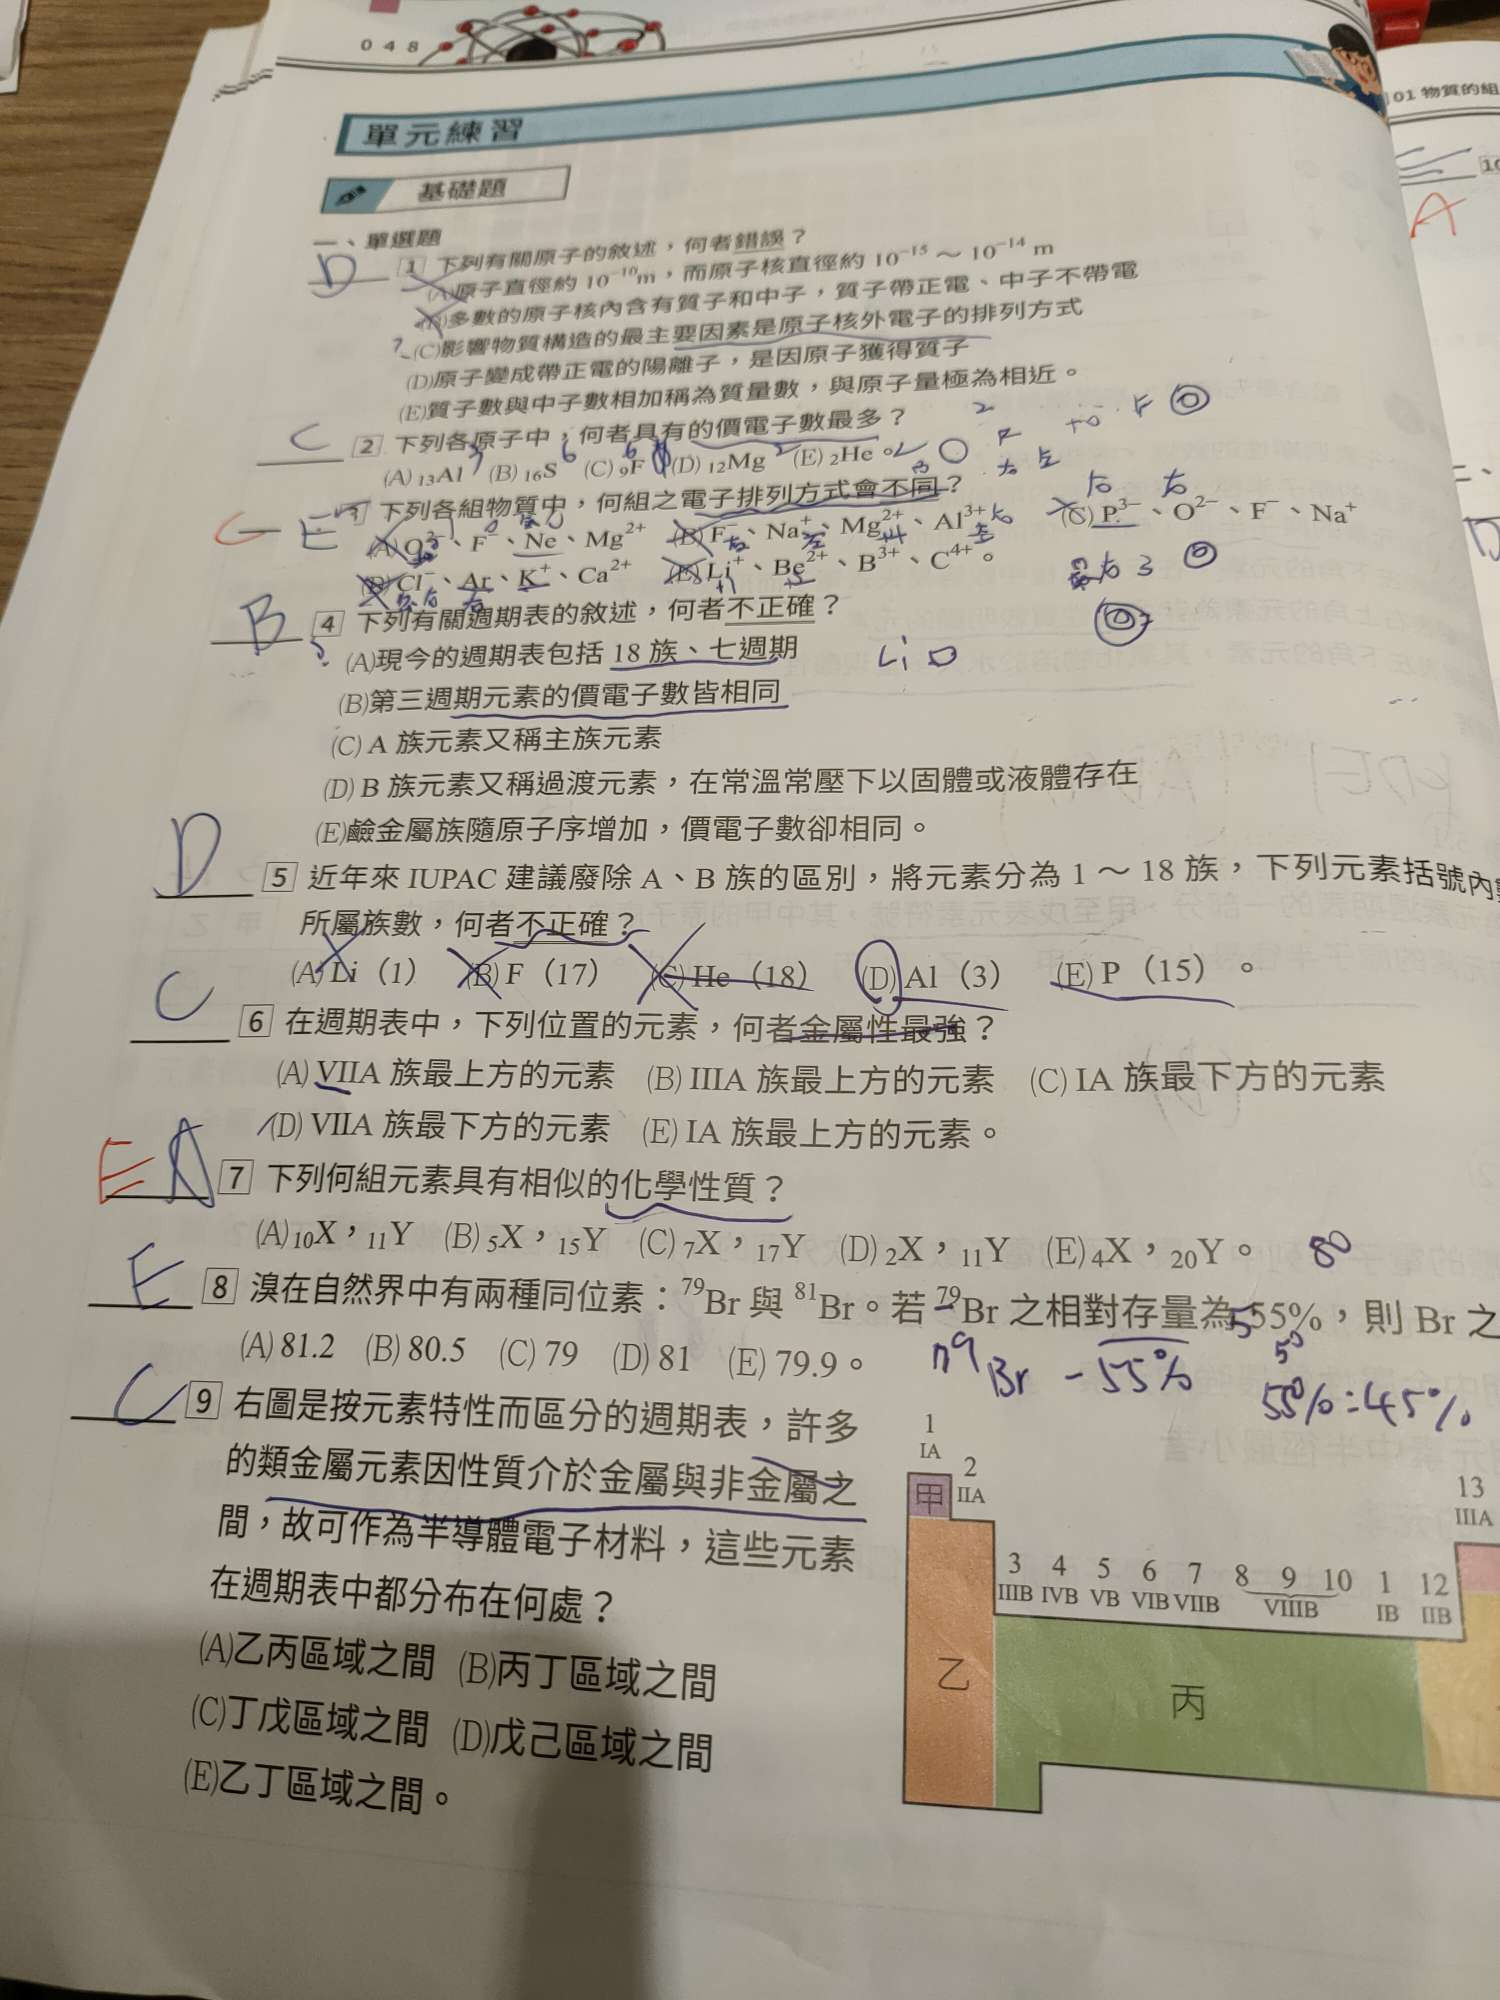 048
01 物質的組
單元練習
基礎題
一、單選題
D 1 下列有關原子的敘述，何者錯誤？
(A)原子直徑約 10⁻¹⁰m，而原子核直徑約 10⁻¹⁵～10⁻¹⁴ m
(B)多數的原子核內含有質子和中子，質子帶正電、中子不帶電
? (C)影響物質構造的最主要因素是原子核外電子的排列方式
(D)原子變成帶正電的陽離子，是因原子獲得質子
(E)質子數與中子數相加稱為質量數，與原子量極為相近。
C 2 下列各原子中，何者具有的價電子數最多？
(A) ₁₃Al (B) ₁₆S (C) ₉F (D) ₁₂Mg (E) ₂He。
C E 3 下列各組物質中，何組之電子排列方式會不同？
(A) O²⁻、F⁻、Ne、Mg²⁺ (B) F⁻、Na⁺、Mg²⁺、Al³⁺ (C) P³⁻、O²⁻、F⁻、Na⁺
(D) Cl⁻、Ar、K⁺、Ca²⁺ (E) Li⁺、Be²⁺、B³⁺、C⁴⁺。
B 4 下列有關週期表的敘述，何者不正確？
(A)現今的週期表包括 18 族、七週期
Li
(B)第三週期元素的價電子數皆相同
(C) A 族元素又稱主族元素
(D) B 族元素又稱過渡元素，在常溫常壓下以固體或液體存在
(E)鹼金屬族隨原子序增加，價電子數卻相同。
D 5 近年來 IUPAC 建議廢除 A、B 族的區別，將元素分為 1～18 族，下列元素括號內
所屬族數，何者不正確？
(A) Li（1） (B) F（17） (C) He（18） (D) Al（3） (E) P（15）。
C 6 在週期表中，下列位置的元素，何者金屬性最強？
(A) VIIA 族最上方的元素 (B) IIIA 族最上方的元素 (C) IA 族最下方的元素
(D) VIIA 族最下方的元素 (E) IA 族最上方的元素。
E A 7 下列何組元素具有相似的化學性質？
(A) ₁₀X，₁₁Y (B) ₅X，₁₅Y (C) ₇X，₁₇Y (D) ₂X，₁₁Y (E) ₄X，₂₀Y。
80
E 8 溴在自然界中有兩種同位素：⁷⁹Br 與 ⁸¹Br。若 ⁷⁹Br 之相對存量為 55%，則 Br 之
(A) 81.2 (B) 80.5 (C) 79 (D) 81 (E) 79.9。
79Br - 55%
55%:45%
C 9 右圖是按元素特性而區分的週期表，許多
的類金屬元素因性質介於金屬與非金屬之
間，故可作為半導體電子材料，這些元素
在週期表中都分布在何處？
(A)乙丙區域之間 (B)丙丁區域之間
(C)丁戊區域之間 (D)戊己區域之間
(E)乙丁區域之間。
1
IA
甲
2
IIA
13
IIIA
3 4 5 6 7 8 9 10 1 12
IIIB IVB VB VIB VIIB VIIIB IB IIB
乙
丙